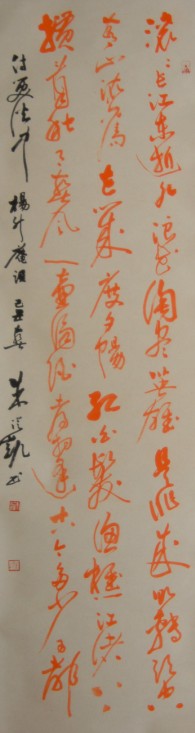 滚〻長江東逝水浪花淘盡英雄是非成敗轉頭空
青山依舊在幾度夕陽紅白髮漁樵江渚上
慣看秋月春風一壺濁酒喜相逢古今多少事都
付笑談中 楊升庵詞 己丑 朱凱书